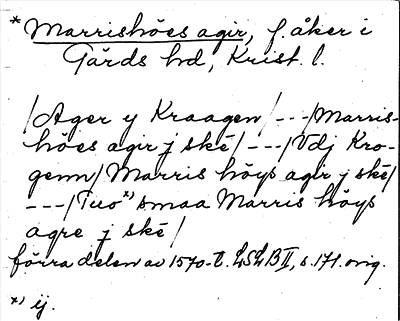 * Marrishöes agir, f. åker i
Gärds hd, Krist. l.
/Ager y Kraagen/---/Marris-
höes agir j ské/---/Vdj Kro-
genn/Marris höys agir j ské/
---/Tuo *) smaa Marris höys
agre j ské/
förra delen av 1570-t. LSLB II, s. 171. orig.
*) ij.